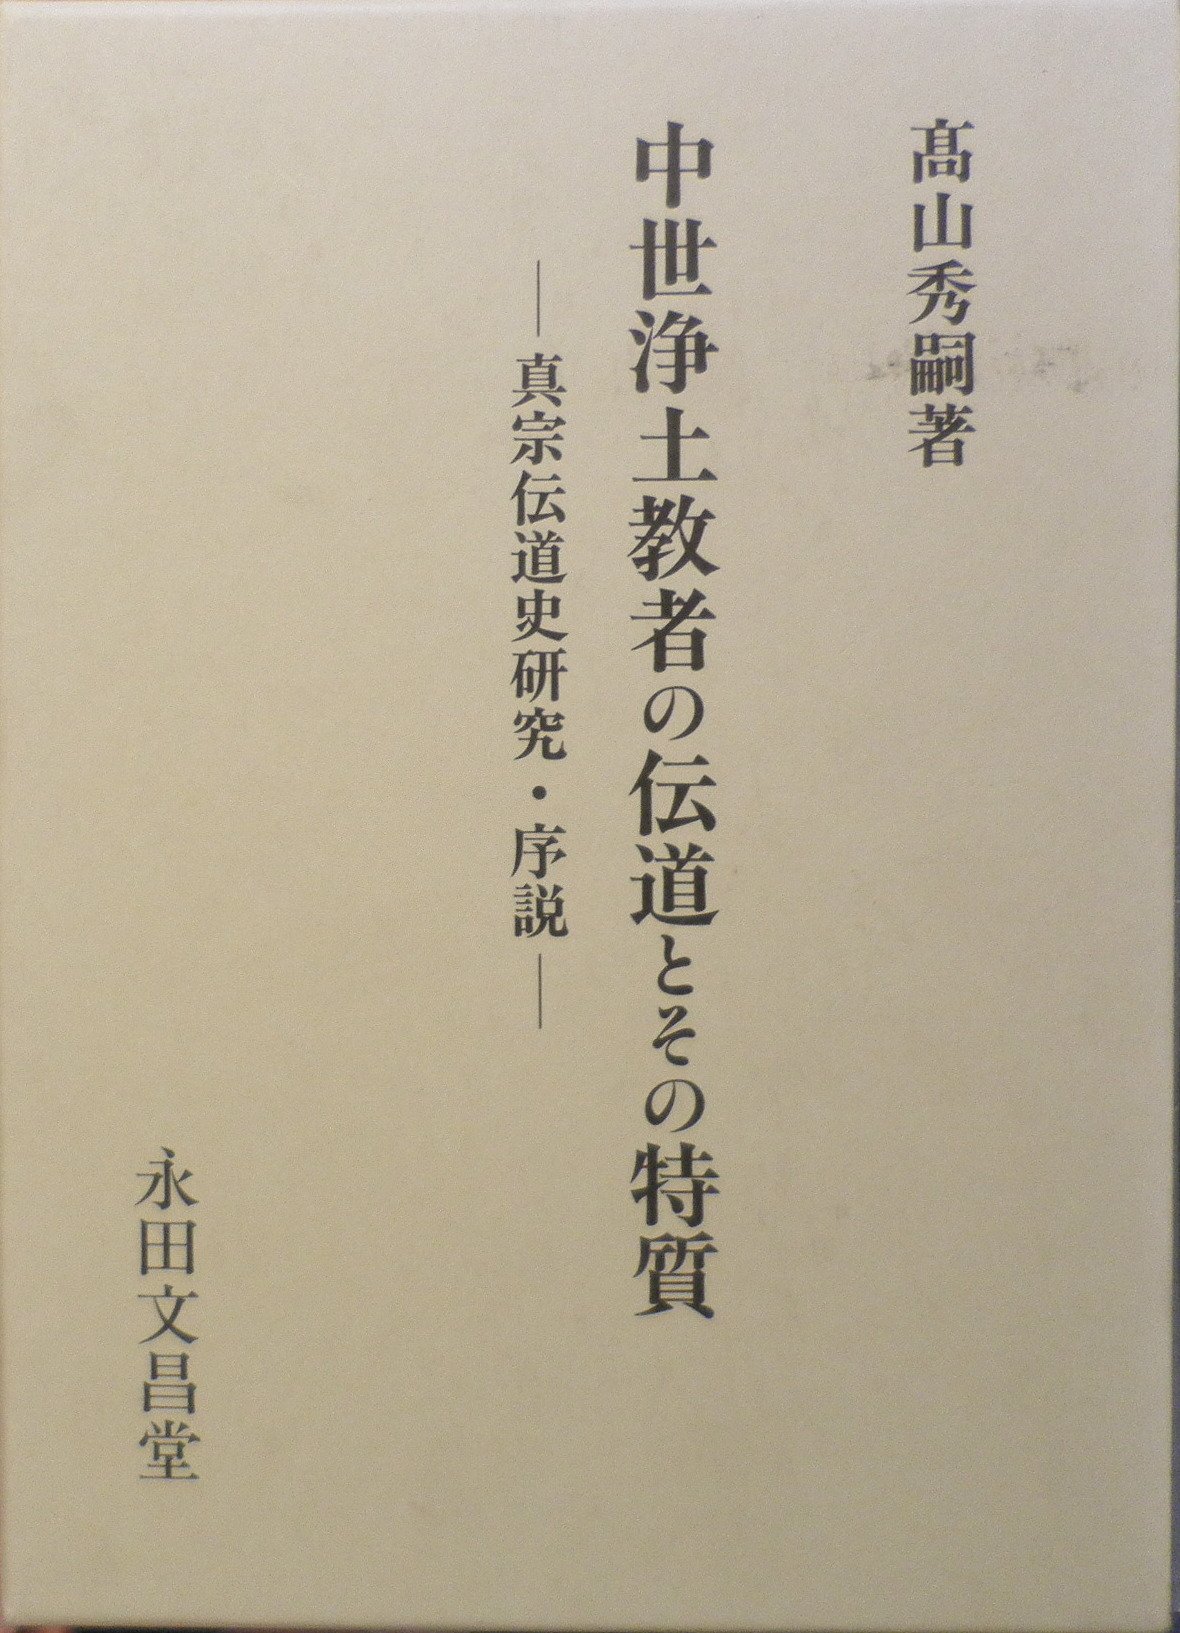 髙山秀嗣著
中世浄土教者の伝道とその特質
―真宗伝道史研究・序説―
永田文昌堂